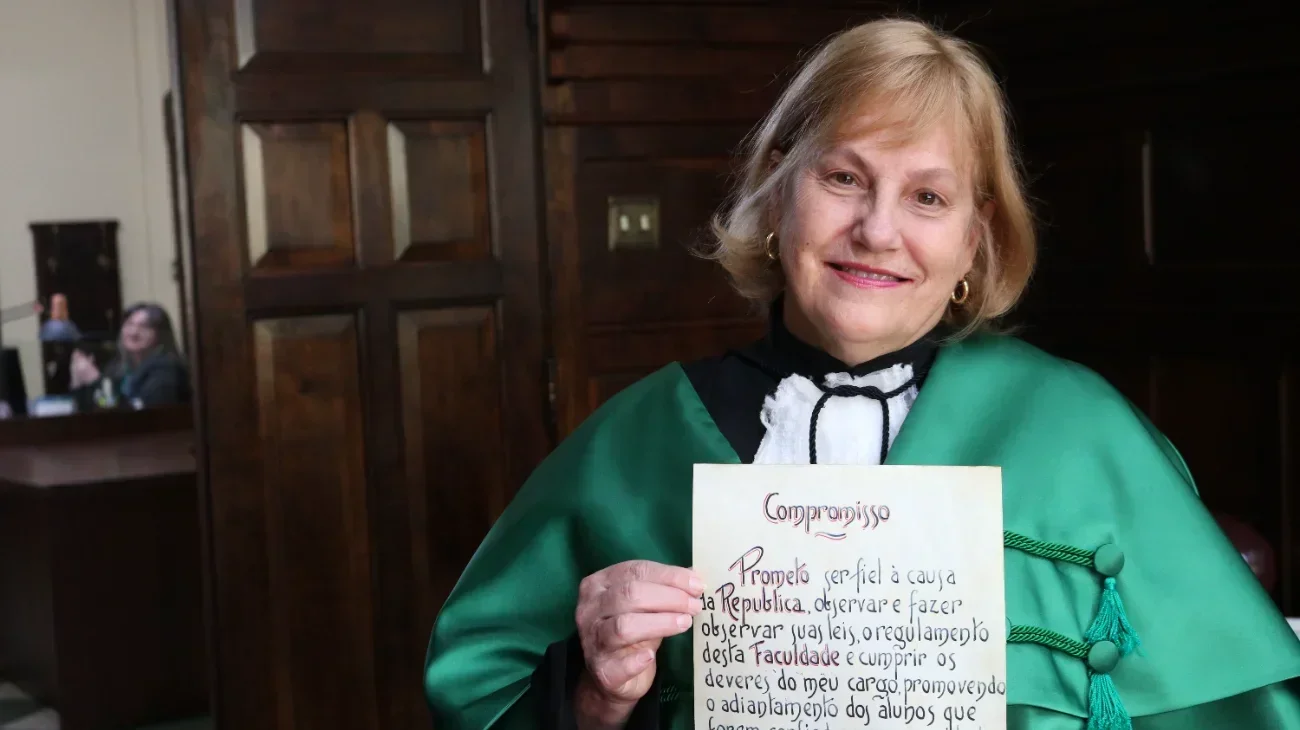 Compromisso
Prometo ser fiel à causa
da Republica, observar e fazer
observar suas leis, o regulamento
desta Faculdade e cumprir os
deveres do meu cargo, promovendo
o adiantamento dos alunos que
forem